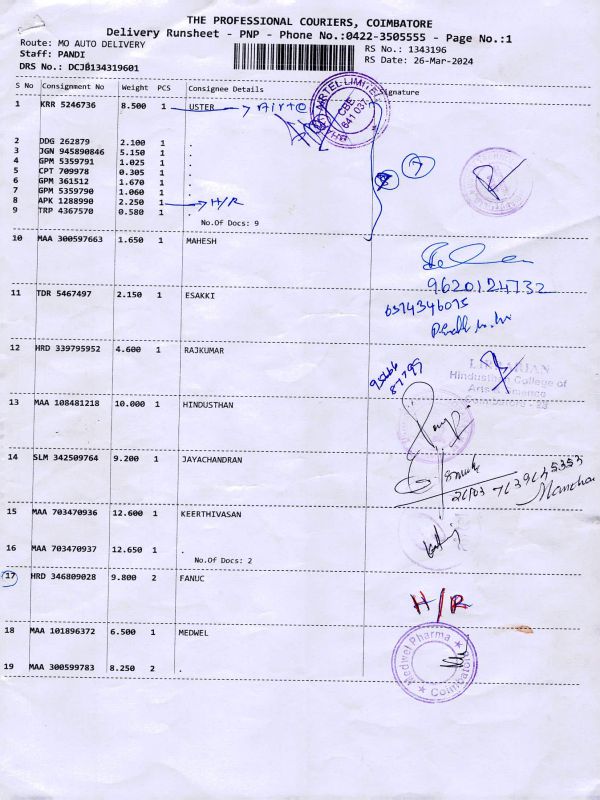 THE PROFESSIONAL COURIERS, COIMBATORE
Delivery Runsheet - PNP - Phone No.:0422-3505555 - Page No.:1
Route: MO AUTO DELIVERY RS No.: 1343196
Staff: PANDI RS Date: 26-Mar-2024
DRS No.: DCJB134319601
S No Consignment No Weight PCS Consignee Details Signature
1 KRR 5246736 8.500 1 USTER
2 DDG 262879 2.100 1 .
3 JGN 945890846 5.150 1 .
4 GPM 5359791 1.025 1 .
5 CPT 709978 0.305 1 .
6 GPM 361512 1.670 1 .
7 GPM 5359790 1.060 1 .
8 APK 1288990 2.250 1 H/R
9 TRP 4367570 0.580 1 .
No.Of Docs: 9
10 MAA 300597663 1.650 1 MAHESH
9620124732
11 TDR 5467497 2.150 1 ESAKKI
6374346075
12 HRD 339795952 4.600 1 RAJKUMAR
LIBRARIAN
Hindusthan College of
Arts & Science
13 MAA 108481218 10.000 1 HINDUSTHAN
14 SLM 342509764 9.200 1 JAYACHANDRAN
15 MAA 703470936 12.600 1 KEERTHIVASAN
16 MAA 703470937 12.650 1 .
No.Of Docs: 2
17 HRD 346809028 9.800 2 FANUC
H/R
18 MAA 101896372 6.500 1 MEDWEL
Medwel Pharma
Coimbatore
19 MAA 300599783 8.250 2 .